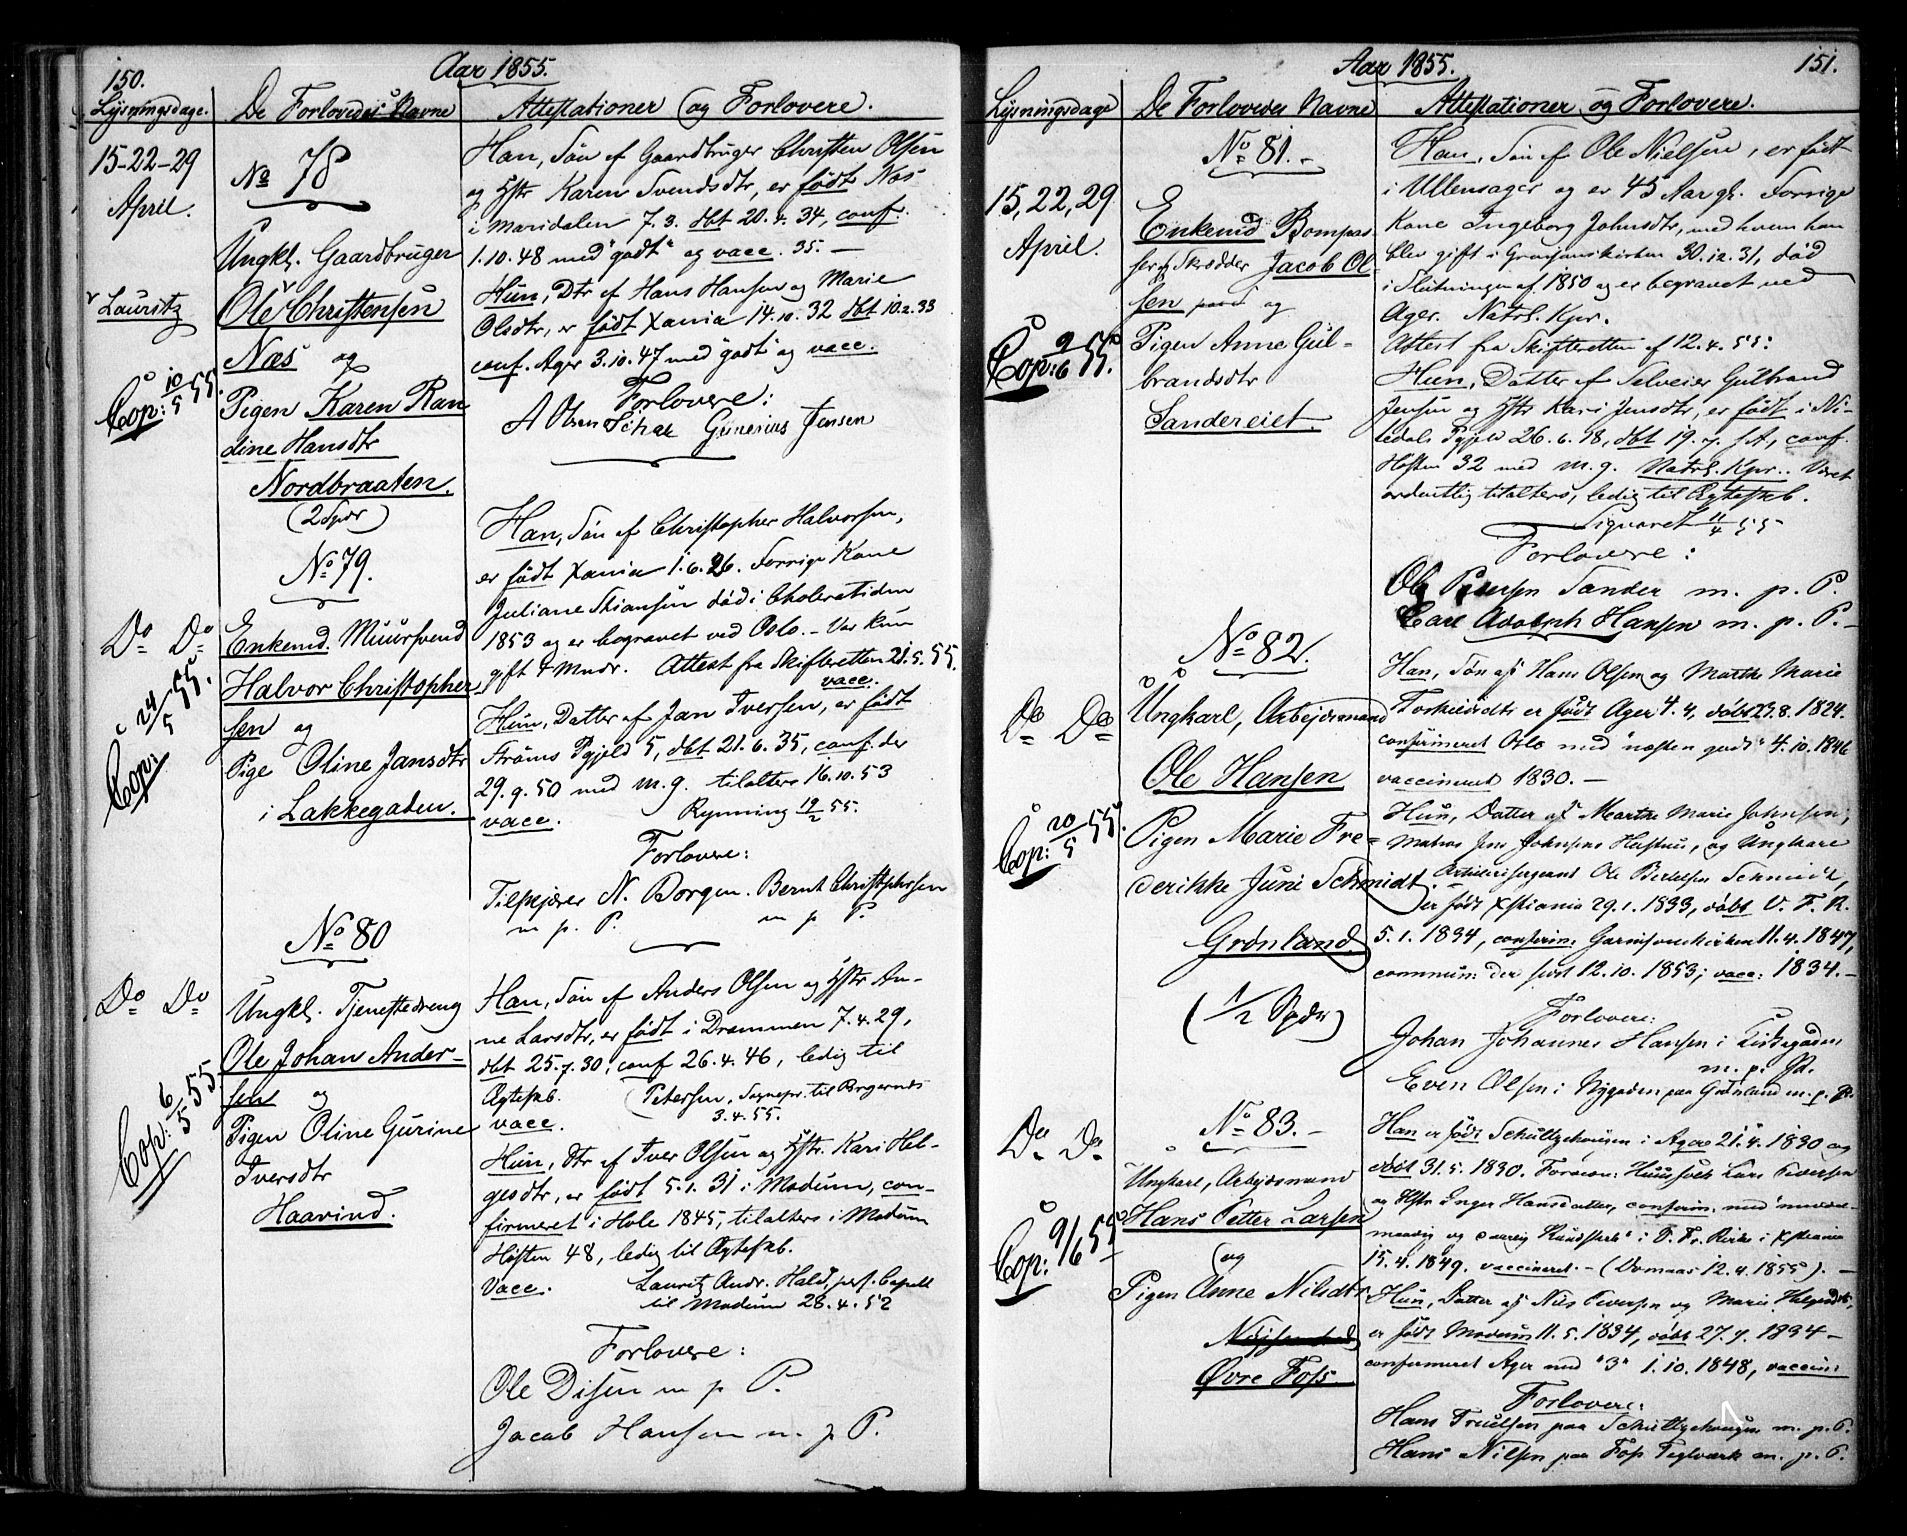 150.
Aar 1855.
Lysningsdage.
De Forlovedes Navne
Attestationer og Forlovere.
15-22-29
April.
Lauritz
Cop: 10/5 55.
No 78
Ungkl. Gaardbruger
Ole Christensen
Næs og
Pigen Karen Ran
dine Hansdtr
Nordbraaten.
(2 Spdr)
Han, Søn af Gaardbruger Christen Olsen
og Hstr Karen Svendsdtr, er født Næs
i Maridalen 7.3. dbt 20.4.34, conf.
1.10.48 med "godt" og vacc. 35. -
Hun, Dtr af Hans Hansen og Marie
Olsdtr, er født Xania 14.10.32 dbt 10.2.33
conf. Ager 3.10.47 med "godt" og vacc.
Forlovere:
A Olsen Gunerius Jensen
Do Do
Cop: 24/5 55.
No 79.
Enkemd. Muursvend
Halvor Christopher
sen og
Pige Oline Jansdtr
i Lakkegaden.
Han, Søn af Christopher Halvorsen,
er født Xania 1.6.26. Forrige Kone
Juliane Stiansen død i Choleratiden
1853 og er begravet ved Oslo. - Var kun
gift 4 Mndr. Attest fra Skifteretten 21.5.55.
vacc.
Hun, Datter af Jan Iversen, er født
Strøms Pgjeld 5, dbt 21.6.35, conf. der
29.9.50 med m.g. tilalters 16.10.53
vacc. Rynning 19/2 55.
Forlovere:
N. Borgen. Bernt Christophersen
m. p. P. m p P.
Do Do
Cop: 6/5 55
No 80
Ungkl. Tjenestedreng
Ole Johan Ander-
sen og
Pigen Oline Gurine
Iversdtr
Haavind.
Han, Søn af Anders Olsen og Hstr An-
ne Larsdtr, er født i Drammen 7.4.29,
dbt 25.7.30, conf 26.4.46, ledig til
Ægteskb. Petersen, Sognepr. til Bragernes
vacc. 3.4.55.
Hun, Dtr af Iver Olsen og Hstr. Kari Hel-
gesdtr, er født 5.1.31 i Modum, con-
firmeret i Hole 1845, tilalters i Modum
Høsten 48, ledig til Ægteskb.
Vacc. Lauritz Andr. Hald, pers. Capell
til Modum 28.4.52
Forlovere:
Ole Disen m p P.
Jacob Hansen m. p P.
Aar 1855.
151.
Lysningsdage
De Forlovedes Navne
Attestationer og Forlovere.
15, 22, 29
April.
Cop: 9/6 55.
No 81. -
Enkemd Bompas-
ser og Skrædder Jacob Ol-
sen og
Pigen Anne Gul-
brandsdtr
Sandereiet.
Han, Søn af Ole Nielsen, er født
i Ullensager og er 45 Aar gl. Forrige
Kone Ingeborg Johnsdtr, med hvem han
blev gift i Garnisonskirken 30.12.31, død
i Slutningen af 1850 og er begravet ved
Ager. Natrl. Kpr.
Attest fra Skifteretten af 12.4.55.
Hun, Datter af Selveier Gulbrand
Jensen og Hstr Kari Jensdtr, er født i Ni-
tedals Pgjeld 26.6.18, dbt 19.7. s.A., conf.
Høsten 32 med m.g. Natrl. Kpr. Været
ordentlig tilalters, ledig til Ægteskb.
Sigvaret 11/4 55
Forlovere:
Ole Petersen Sander m. p. P.
Carl Adolph Hansen m. p. P. -
Do Do
Cop: 20/5 55.
No 82.
Ungkarl, Arbejdsmand
Ole Hansen
Pigen Marie Fre-
derikke Juni Schmidt.
Grønland.
(1/2 Spdr)
Han, Søn af Hans Olsen og Marthe Marie
Torkildsdtr er født Ager 4.4, døbt 23.8.1824.
confirmeret Oslo med "næsten godt" 4.10.1846
vaccineret 1830. -
Hun, Datter af Marthe Marie Johnsen,
Matros Jens Johnsens Hustru, og Ungkarl
Artillerisergeant Ole Bertelsen Schmidt,
er født Xstiania 29.1.1833, døbt V. F. K.
5.1.1834, conferm. Garnisonskirken 11.4.1847,
commun: der sidst 12.10.1853; vacc: 1834. -
Forlovere:
Johan Johannes Hansen i Kirkegaden
m. p. Pd.
Even Olsen i Nygaden paa Grønland m. p. P.
Do Do
Cop: 9/6 55
No 83. -
Ungkarl, Arbejdsmand
Hans Petter Larsen
og
Pigen Anne Nilsdtr
Øvre Foss.
Han er født Schultzehougen i Ager 21.4.1830 og
døbt 31.5.1830. Forældre: Huusfolk Lars Petersen
og Hstr Inger Hansdatter, conferm: med "maade-
maadig og daarlig Kundskab" i V. Fr. Kirke i Xstiania
15.4.1849, vaccineret. - (Domaas 12.4.1855). -
Hun, Datter af Nils Iversen og Marie Helgesdtr,
er født Modum 11.5.1834, døbt 27.7.1834 -
confermeret Ager med "3" 1.10.1848, vaccin:
Forlovere:
Hans Truelsen paa Schultzehougen m. p. P.
Hans Nilsen paa Fos Teglværk m. p. P.